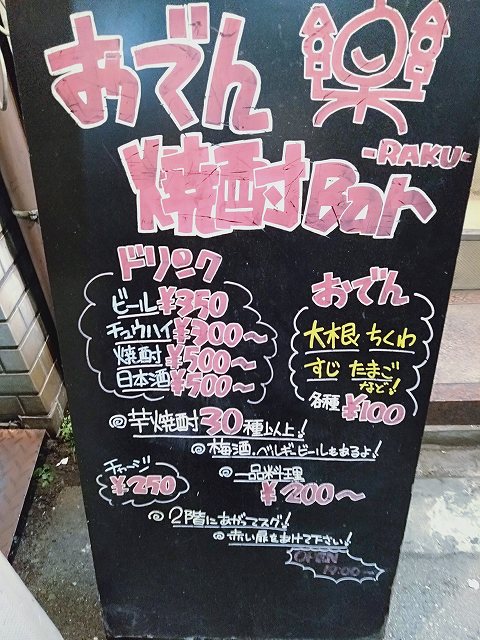 おでん 楽
-RAKU-
焼酎Bar
ドリンク
ビール ¥350
チュウハイ ¥300～
焼酎 ¥500～
日本酒 ¥500～
おでん
大根 ちくわ
すじ たまご
など!
各種 ¥100
◎芋焼酎30種以上!
◎梅酒、ベルギービールもあるよ!
チャージ
¥250
◎一品料理
¥200～
◎2階にあがってスグ!
◎赤い扉をあけて下さい!
OPEN